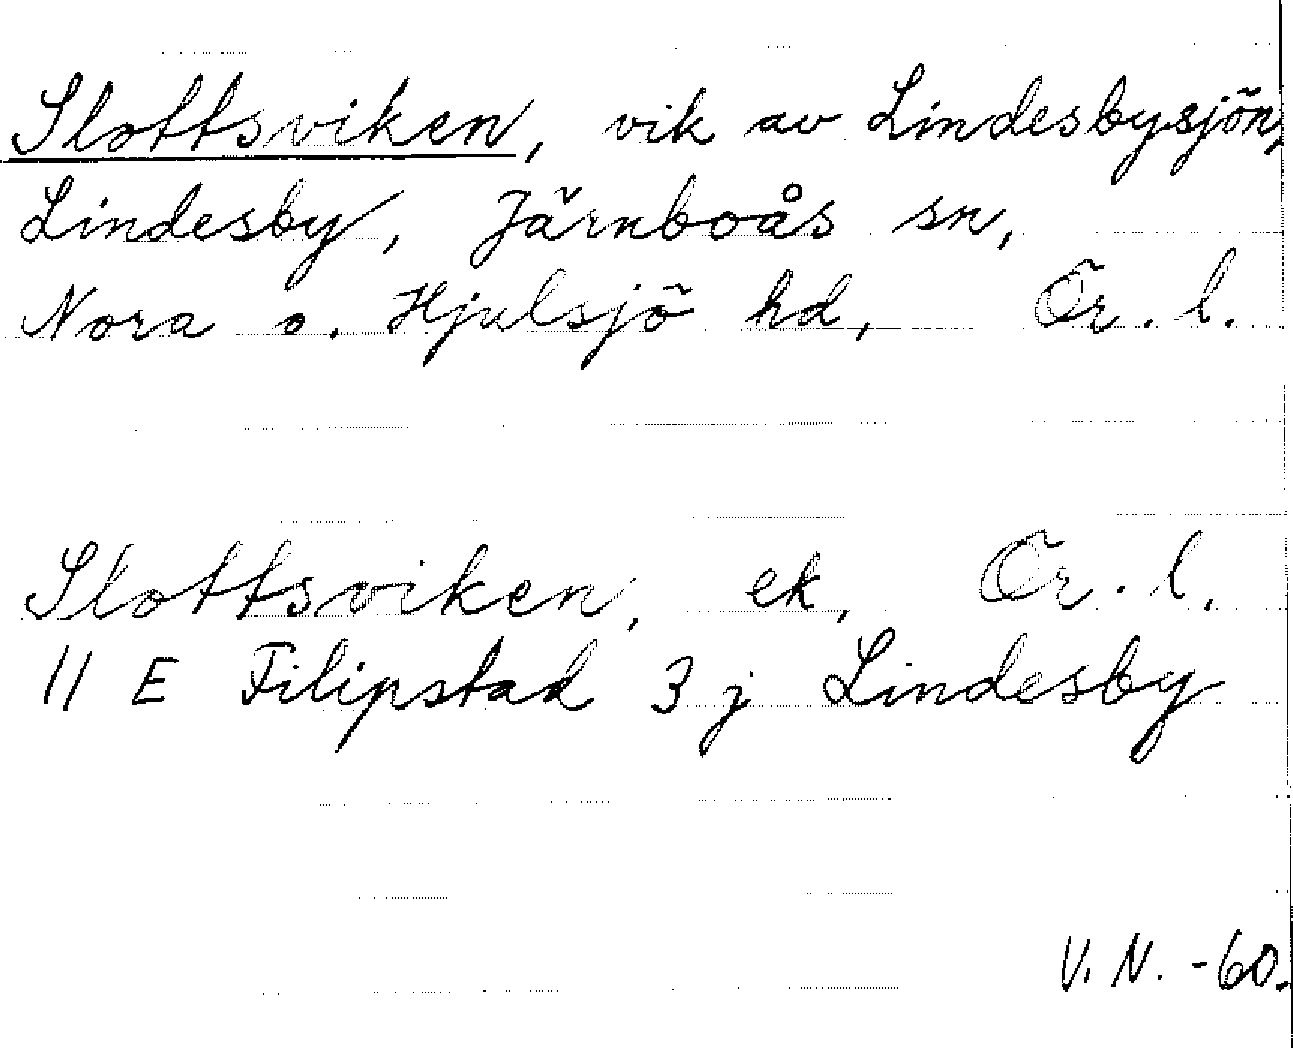 Slottsviken, vik av Lindesbysjön,
Lindesby, Järnboås sn,
Nora o. Hjulsjö hd, Ör. l.
Slottsviken, ek, Ör. l.
11 E Filipstad 3 j Lindesby
V. N. -60.